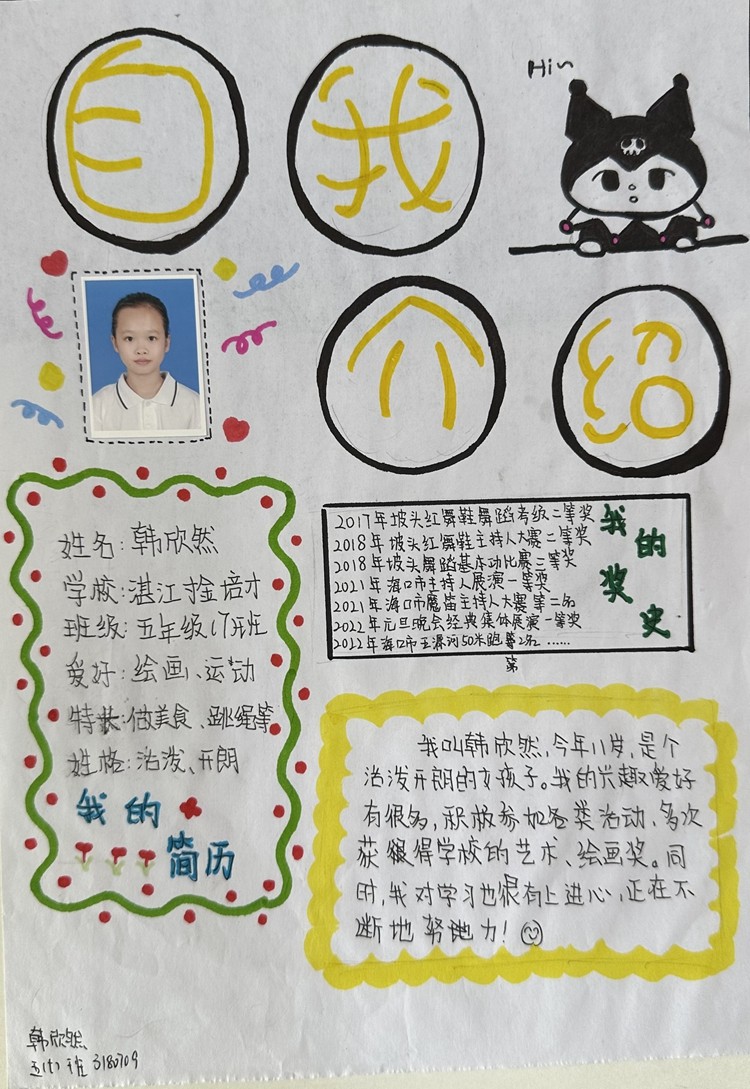 自我
Hi~
介绍
姓名:韩欣然
学校:湛江寸金培才
班级:五年级17班
爱好:绘画、运动
特长:做美食、跳绳等
姓格:活泼、开朗
我的
简历
2017年坡头红舞鞋舞蹈考级二等奖
2018年坡头红舞鞋主持人大赛二等奖
2018年坡头舞蹈基本功比赛三等奖
2021年海口市主持人展演一等奖
2021年海口市魔笛主持人大赛第二名
2022年元旦晚会经典集体展演一等奖
2022年海口市五源河50米跑第2名……
第
我的
奖史
我叫韩欣然,今年11岁,是个
活泼开朗的女孩子。我的兴趣爱好
有很多,积极参加各类活动、多次
获得学校的艺术、绘画奖。同
时,我对学习也很有上进心,正在不
断地努力!
韩欣然
五(17)班 3180709